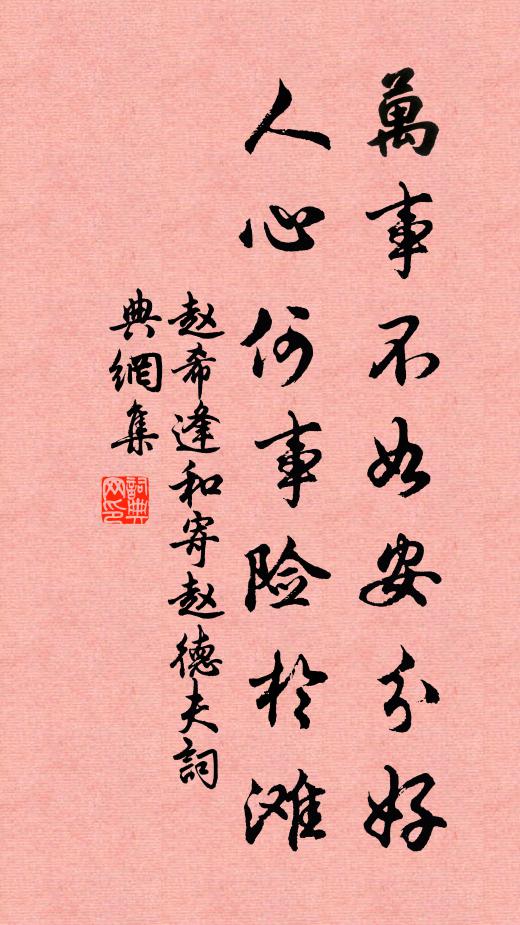 萬事不如安分好
人心何事险於滩
赵希逢和寄赵德夫詞
典網集
詞典网印